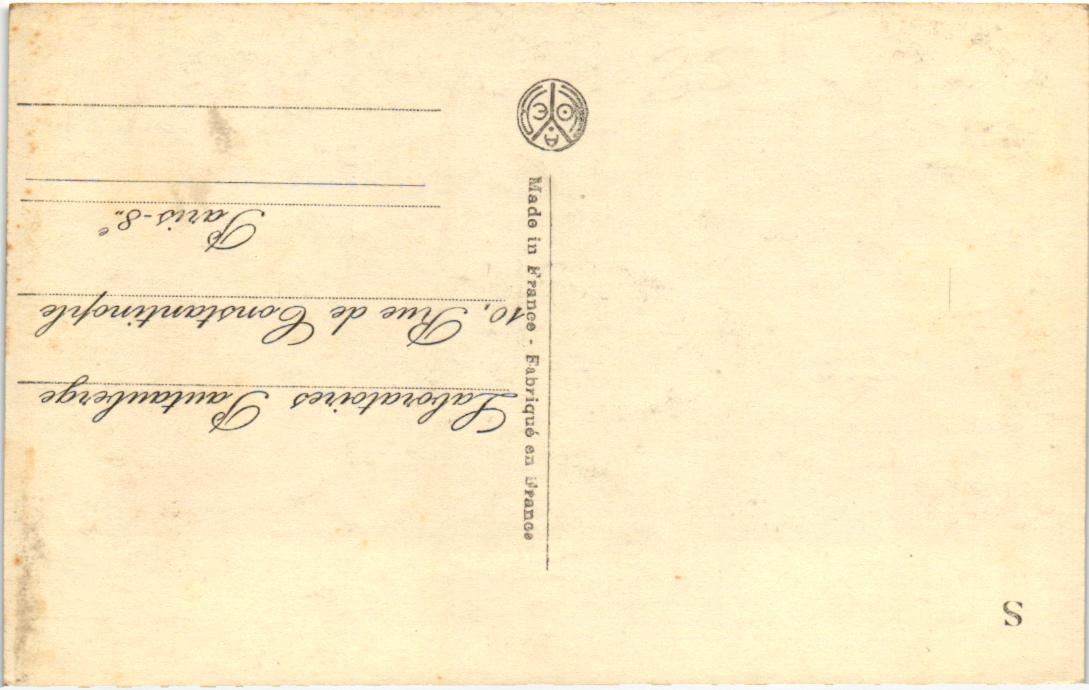 Laboratoires Pautauberge
10, Rue de Constantinople
Paris-8e..
Made in France - Fabriqué en France
S